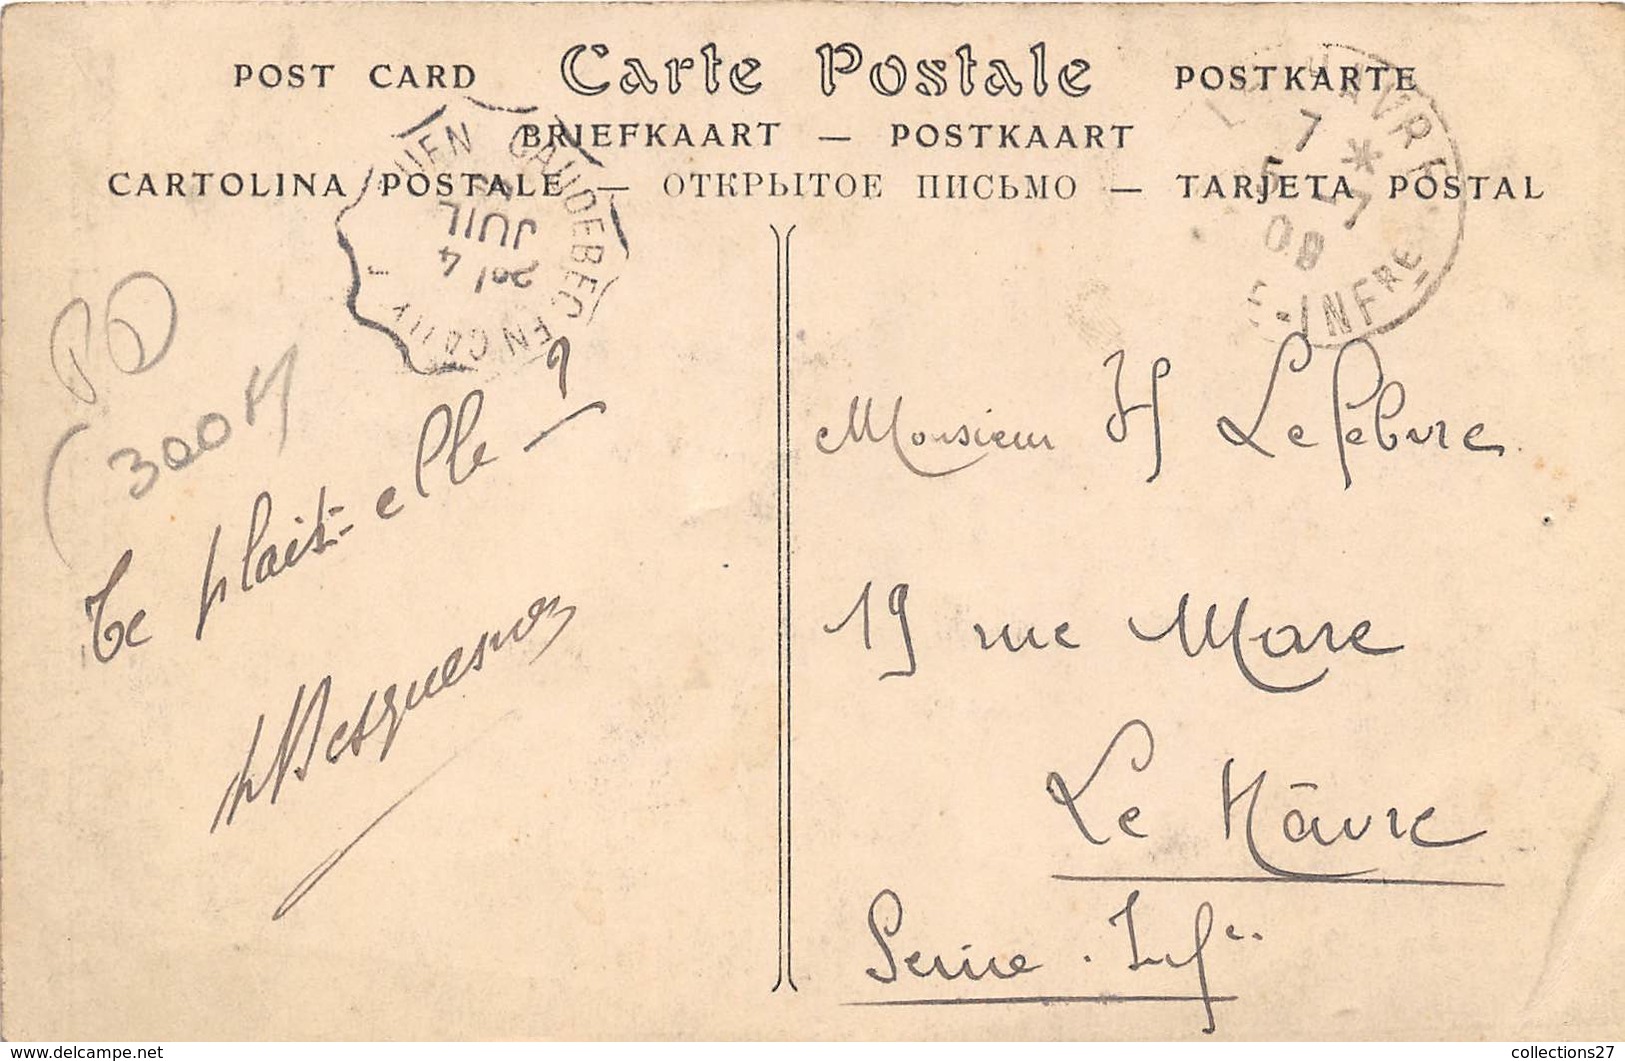 POST CARD Carte Postale POSTKARTE
BRIEFKAART — POSTKAART
CARTOLINA POSTALE — ОТКРЫТОЕ ПИСЬМО — TARJETA POSTAL
CAUDEBEC EN CAUX
4
JUIL
LE HAVRE
7 *
5 - 7
08
E-INFRE
300 M
Te plait-elle ?
Monsieur H Lefebvre
19 rue Mare
Le Hâvre
Seine. Infre
collections27